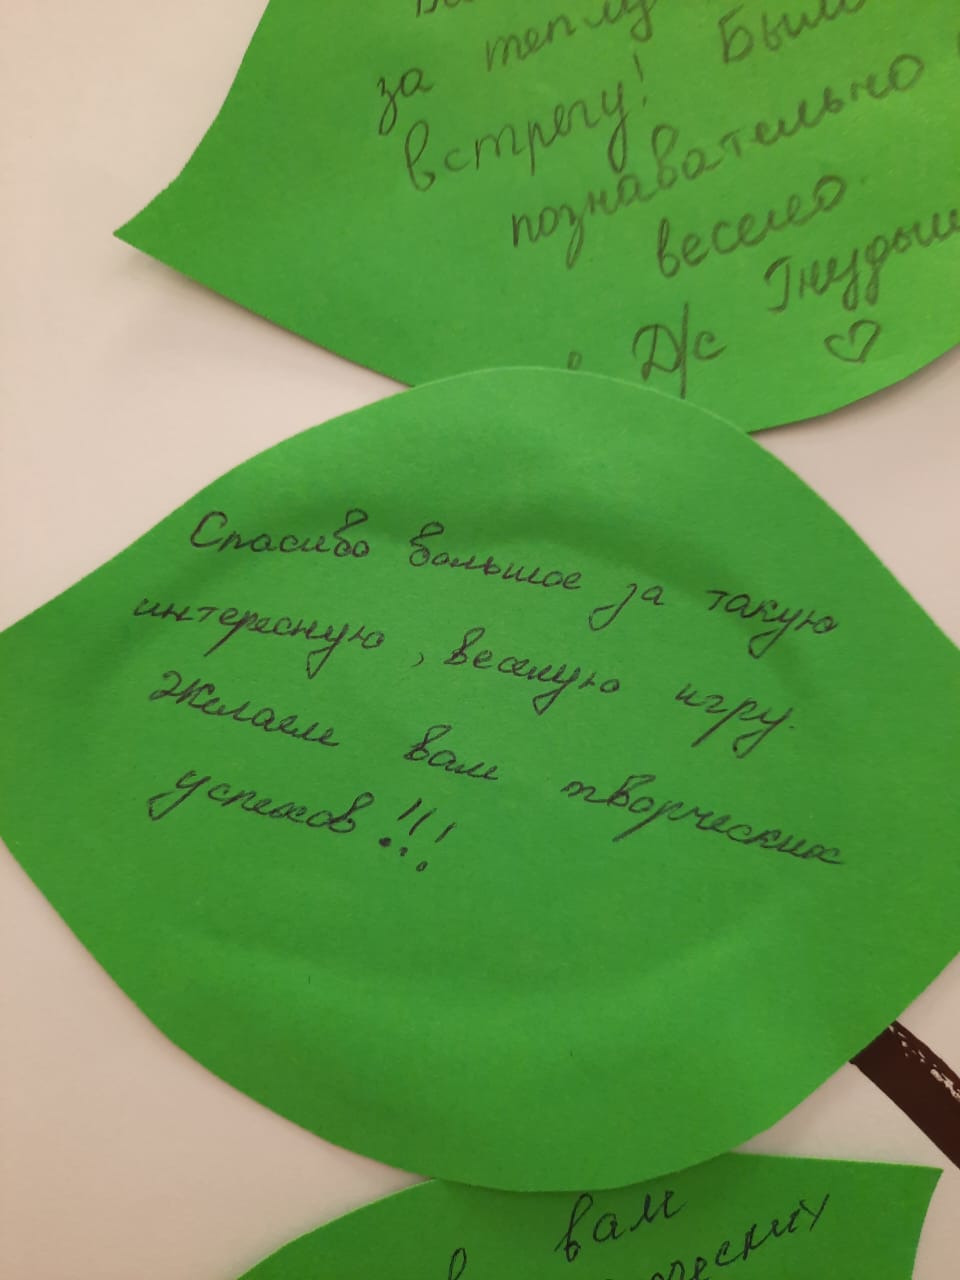 за теплу
встречу! Было
познавательно
весело.
Д/с Гнудыш
Спасибо большое за такую
интересную, веселую игру.
Желаем вам творческих
успехов!!!
в вам
ческих